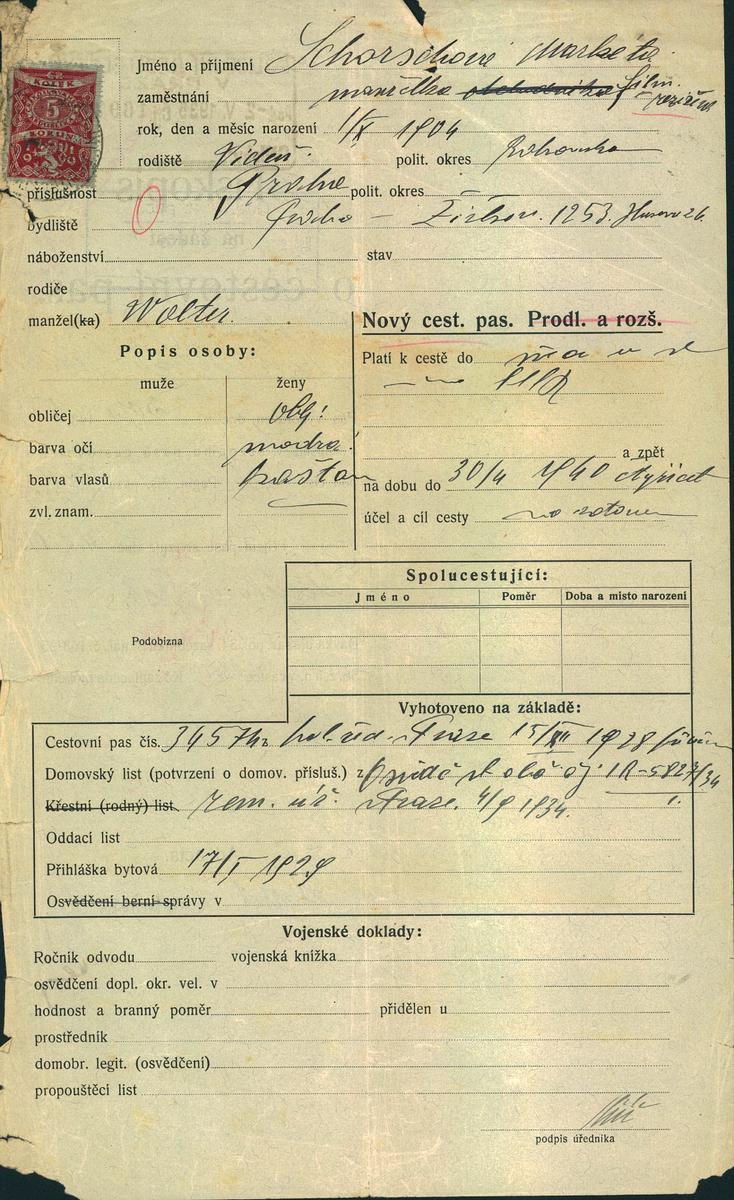 Jméno a příjmení Schorschová Markéta
5
KORUN
1919
zaměstnání manželka obchodníka film. režiséra
rok, den a měsíc narození 1/X 1904
rodiště Vídeň. polit. okres Rakousko
příslušnost Praha polit. okres
bydliště Praha – Žižkov. 1253. Husova 26.
náboženství stav
rodiče
manžel(ka) Walter.
Nový cest. pas. Prodl. a rozš.
Popis osoby:
muže ženy
obličej obl:
barva očí modrá
barva vlasů kaštan
zvl. znam.
Platí k cestě do
a zpět
na dobu do 30/4 1940 čtyřicet
účel a cíl cesty
Spolucestující:
Jméno Poměr Doba a místo narození
Podobizna
Vyhotoveno na základě:
Cestovní pas čís. pol. řed. Praze 15/XII 1928
Domovský list (potvrzení o domov. přísluš.) z
Křestní (rodný) list zem. úř. Praze. 1934.
Oddací list
Přihláška bytová 17/I 1929
Osvědčení berní správy v
Vojenské doklady:
Ročník odvodu vojenská knížka
osvědčení dopl. okr. vel. v
hodnost a branný poměr přidělen u
prostředník
domobr. legit. (osvědčení)
propouštěcí list
podpis úředníka